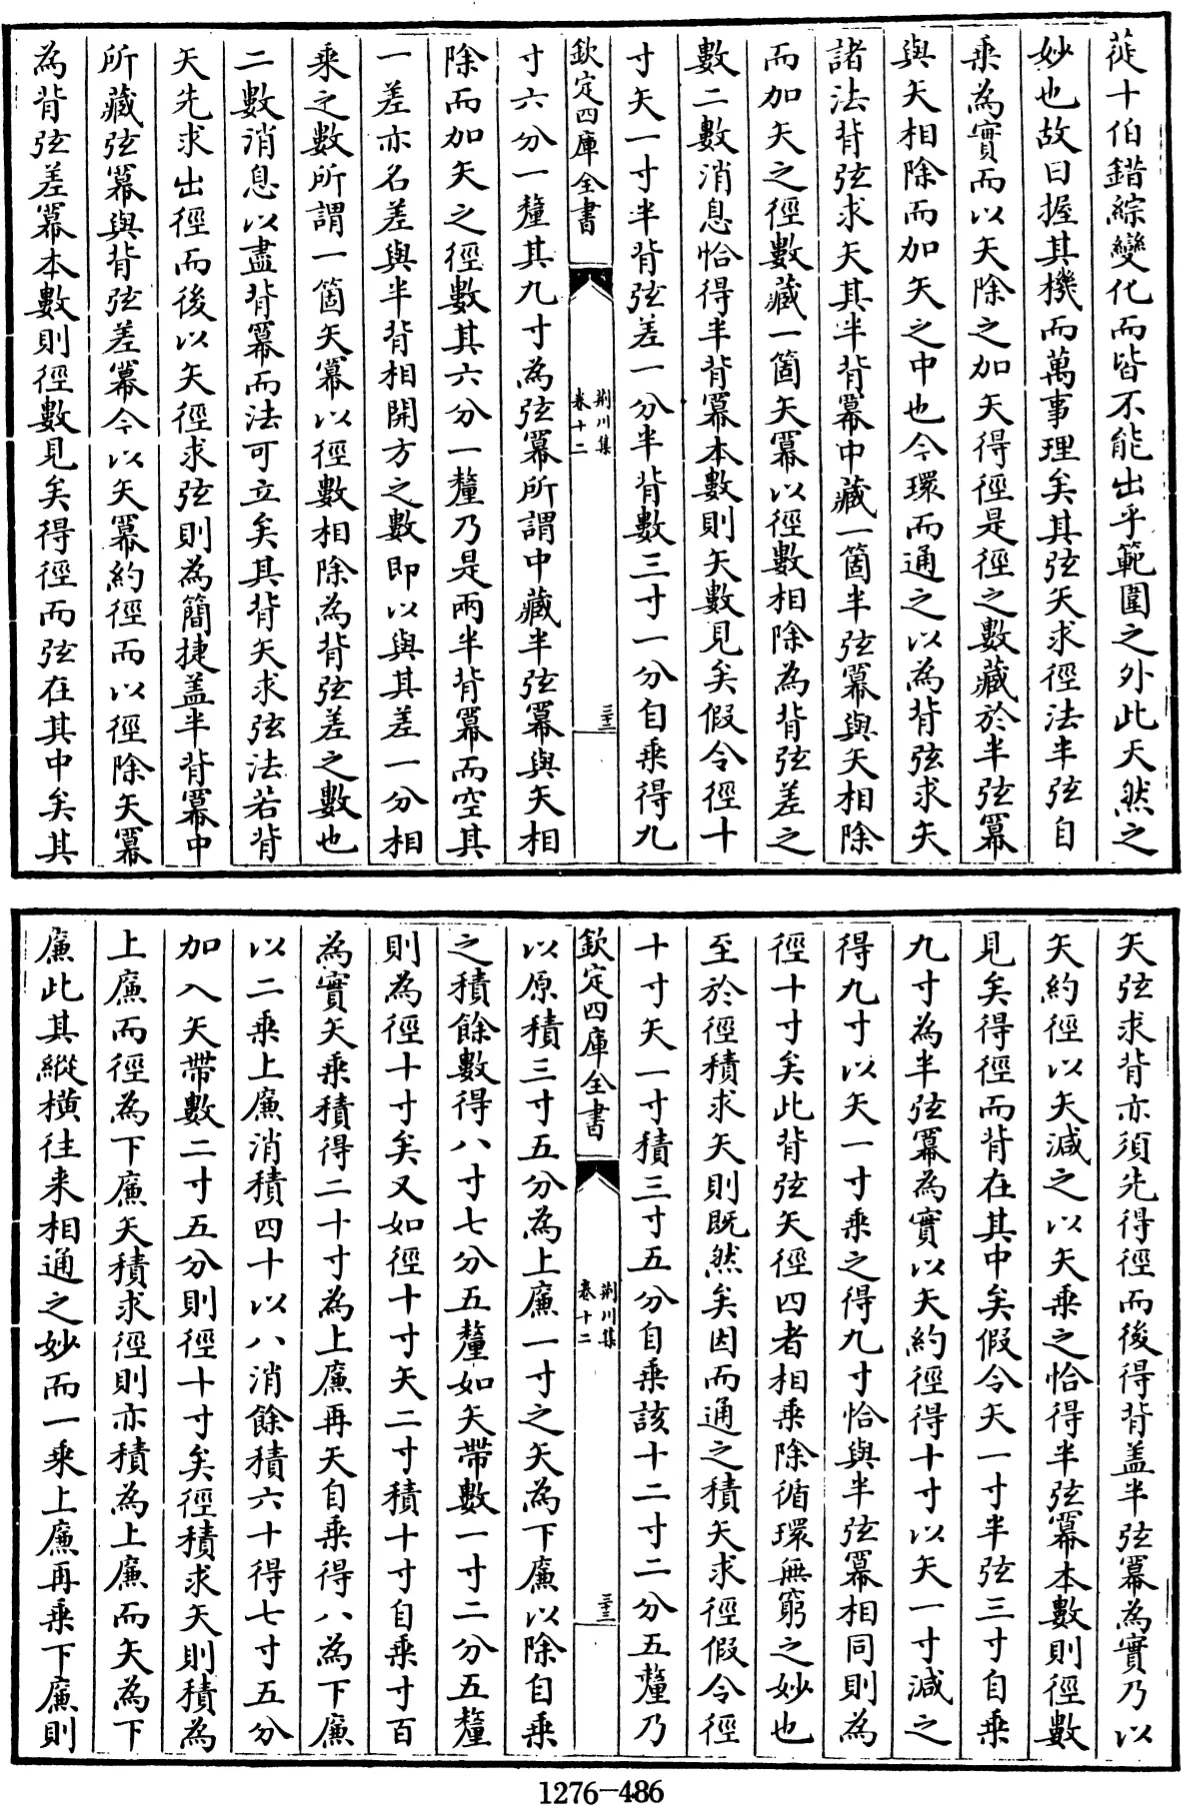 蓰十伯錯綜變化而皆不能出乎範圍之外此天然之
妙也故曰握其機而萬事理矣其弦矢求徑法半弦自
乘為實而以矢除之加矢得徑是徑之數藏於半弦羃
與矢相除而加矢之中也今環而通之以為背弦求矢
諸法背弦求矢其半背羃中藏一箇半弦羃與矢相除
而加矢之徑數藏一箇矢羃以徑數相除為背弦差之
數二數消息恰得半背羃本數則矢數見矣假令徑十
寸矢一寸半背弦差一分半背數三寸一分自乘得九
欽定四庫全書
荆川集
卷十二
三十二
寸六分一釐其九寸為弦羃所謂中藏半弦羃與矢相
除而加矢之徑數其六分一釐乃是兩半背羃而空其
一差亦名差與半背相開方之數即以與其差一分相
乘之數所謂一箇矢羃以徑數相除為背弦差之數也
二數消息以盡背羃而法可立矣其背矢求弦法若背
矢先求出徑而後以矢徑求弦則為簡捷盖半背羃中
所藏弦羃與背弦差羃今以矢羃約徑而以徑除矢羃
為背弦差羃本數則徑數見矣得徑而弦在其中矣其
矢弦求背亦須先得徑而後得背盖半弦羃為實乃以
矢約徑以矢減之以矢乘之恰得半弦羃本數則徑數
見矣得徑而背在其中矣假令矢一寸半弦三寸自乘
九寸為半弦羃為實以矢約徑得十寸以矢一寸減之
得九寸以矢一寸乘之得九寸恰與半弦羃相同則為
徑十寸矣此背弦矢徑四者相乘除循環無窮之妙也
至於徑積求矢則既然矣因而通之積矢求徑假令徑
十寸矢一寸積三寸五分自乘該十二寸二分五釐乃
欽定四庫全書
荆川集
卷十二
三十三
以原積三寸五分為上廉一寸之矢為下廉以除自乘
之積餘數得八寸七分五釐如矢帶數一寸二分五釐
則為徑十寸矣又如徑十寸矢二寸積十寸自乘寸百
為實矢乘積得二十寸為上廉再矢自乘得八為下廉
以二乘上廉消積四十以八消餘積六十得七寸五分
加入矢帶數二寸五分則徑十寸矣徑積求矢則積為
上廉而徑為下廉矢積求徑則亦積為上廉而矢為下
廉此其縱横往来相通之妙而一乘上廉再乘下廉則
1276-486